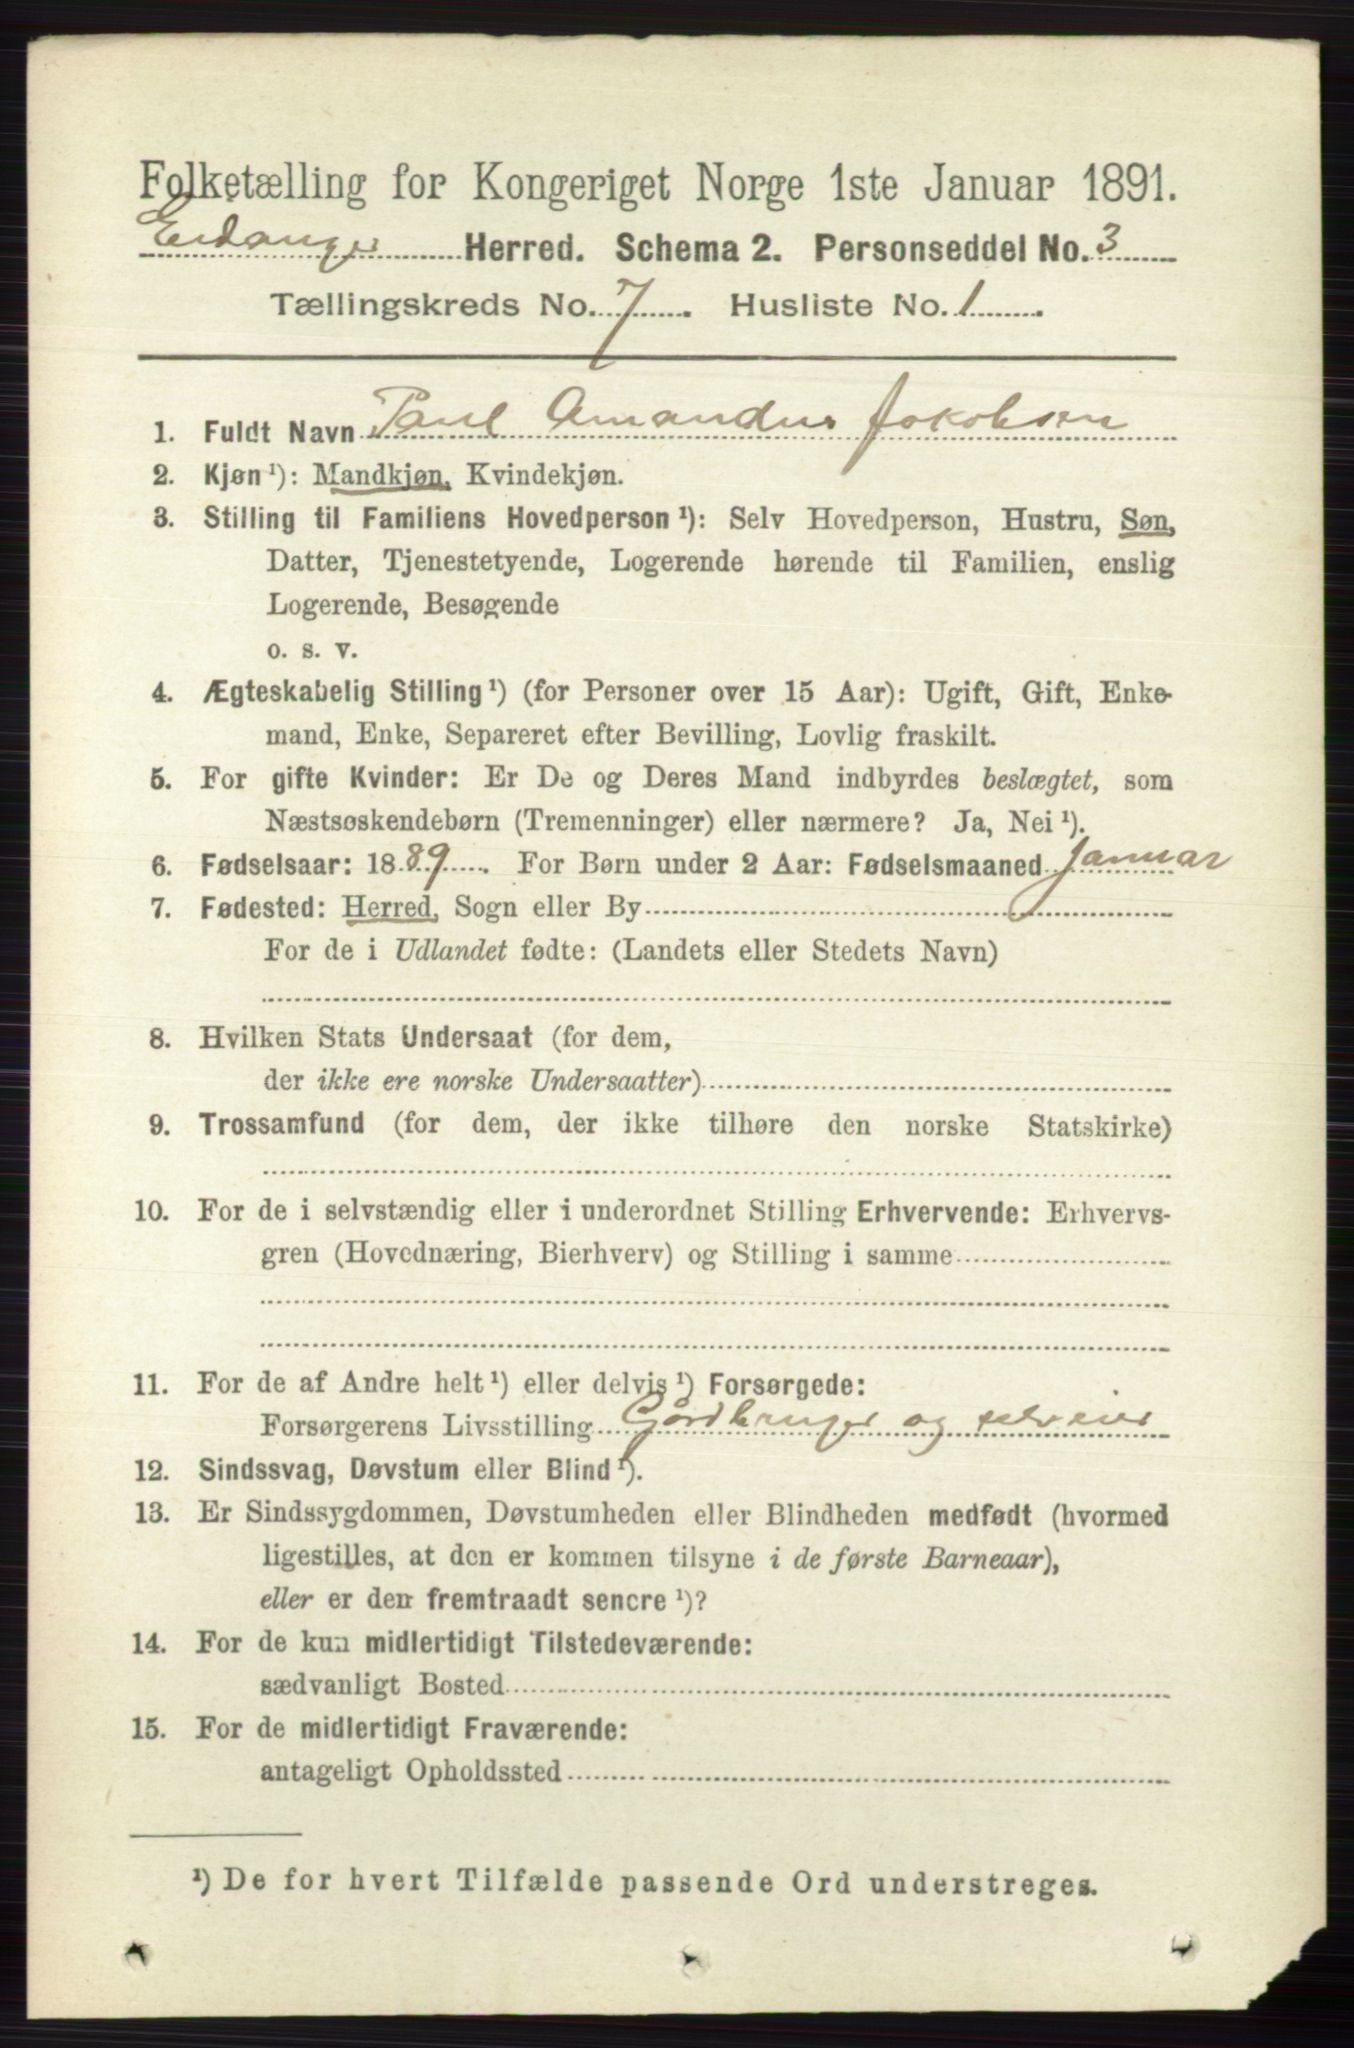 Folketælling for Kongeriget Norge 1ste Januar 1891.
Eidanger Herred. Schema 2. Personseddel No. 3
Tællingskreds No. 7. Husliste No. 1.
1. Fuldt Navn Paul Amandus Jakobsen
2. Kjøn ¹): Mandkjøn, Kvindekjøn.
3. Stilling til Familiens Hovedperson ¹): Selv Hovedperson, Hustru, Søn,
Datter, Tjenestetyende, Logerende hørende til Familien, enslig
Logerende, Besøgende
o. s. v.
4. Ægteskabelig Stilling ¹) (for Personer over 15 Aar): Ugift, Gift, Enke-
mand, Enke, Separeret efter Bevilling, Lovlig fraskilt.
5. For gifte Kvinder: Er De og Deres Mand indbyrdes beslægtet, som
Næstsøskendebørn (Tremenninger) eller nærmere? Ja, Nei ¹).
6. Fødselsaar: 1889. For Børn under 2 Aar: Fødselsmaaned Januar
7. Fødested: Herred, Sogn eller By
For de i Udlandet fødte: (Landets eller Stedets Navn)
8. Hvilken Stats Undersaat (for dem,
der ikke ere norske Undersaatter)
9. Trossamfund (for dem, der ikke tilhøre den norske Statskirke)
10. For de i selvstændig eller i underordnet Stilling Erhvervende: Erhvervs-
gren (Hovednæring, Bierhverv) og Stilling i samme
11. For de af Andre helt ¹) eller delvis ¹) Forsørgede:
Forsørgerens Livsstilling Gårdbruger og selveier
12. Sindssvag, Døvstum eller Blind ¹).
13. Er Sindssygdommen, Døvstumheden eller Blindheden medfødt (hvormed
ligestilles, at den er kommen tilsyne i de første Barneaar),
eller er den fremtraadt senere ¹)?
14. For de kun midlertidigt Tilstedeværende:
sædvanligt Bosted
15. For de midlertidigt Fraværende:
antageligt Opholdssted
¹) De for hvert Tilfælde passende Ord understreges.